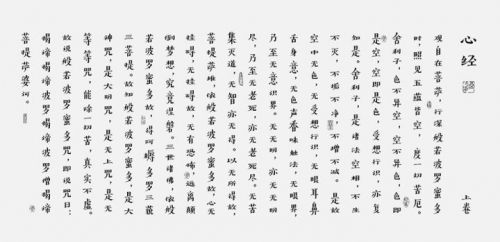 心经
上卷
观自在菩萨，行深般若波罗蜜多
时，照见五蕴皆空，度一切苦厄。
舍利子，色不异空，空不异色，色即
是空，空即是色，受想行识，亦复
如是。舍利子，是诸法空相，不生
不灭，不垢不净，不增不减。是故
空中无色，无受想行识，无眼耳鼻
舌身意，无色声香味触法，无眼界，
乃至无意识界。无无明，亦无无明
尽，乃至无老死，亦无老死尽。无苦
集灭道，无智亦无得。以无所得故，
菩提萨埵，依般若波罗蜜多故，心无
挂碍，无挂碍故，无有恐怖，远离颠
倒梦想，究竟涅槃。三世诸佛，依般
若波罗蜜多故，得阿耨多罗三藐
三菩提。故知般若波罗蜜多，是大
神咒，是大明咒，是无上咒，是无
等等咒，能除一切苦，真实不虚。
故说般若波罗蜜多咒，即说咒曰：
揭谛揭谛波罗揭谛波罗僧揭谛
菩提萨婆诃。